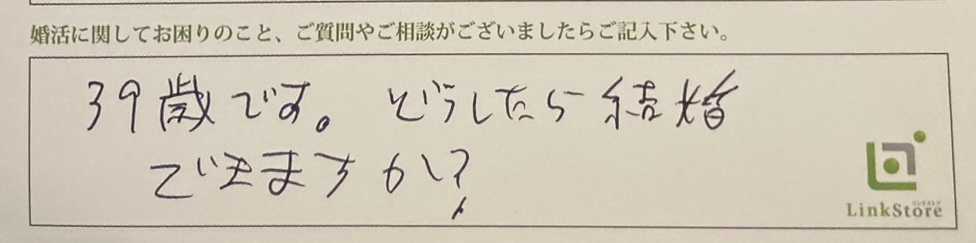 婚活に関してお困りのこと、ご質問やご相談がございましたらご記入下さい。
39歳です。どうしたら結婚
できますか?
リンクストア
LinkStore